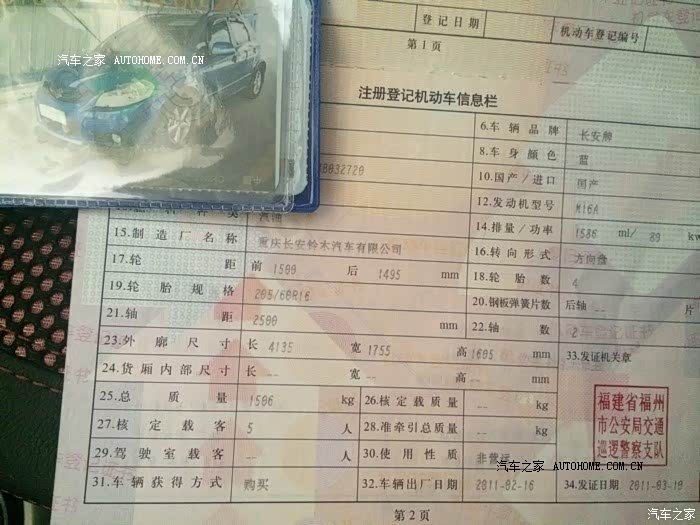 登记日期
机动车登记编号
第1页
汽车之家 AUTOHOME.COM.CN
注册登记机动车信息栏
6.车辆品牌 长安牌
8.车身颜色 蓝
10.国产/进口 国产
12.发动机型号 M16A
汽油
14.排量/功率 1586 ml/ 80 kw
15.制造厂名称 重庆长安铃木汽车有限公司
16.转向形式 方向盘
17.轮距 前 1500 后 1495 mm
18.轮胎数 4
19.轮胎规格 205/60R16
20.钢板弹簧片数 后轴 -- 片
21.轴距 2500 mm
22.轴数 2
23.外廓尺寸 长 4135 宽 1755 高 1605 mm
33.发证机关章
24.货厢内部尺寸 长 -- 宽 -- 高 -- mm
25.总质量 1506 kg
26.核定载质量 -- kg
27.核定载客 5 人
28.准牵引总质量 -- kg
福建省福州
市公安局交通
巡逻警察支队
29.驾驶室载客 -- 人
30.使用性质 非营运
汽车之家 AUTOHOME.COM.CN
31.车辆获得方式 购买
32.车辆出厂日期 2011-02-16
34.发证日期 2011-03-10
第2页
汽车之家